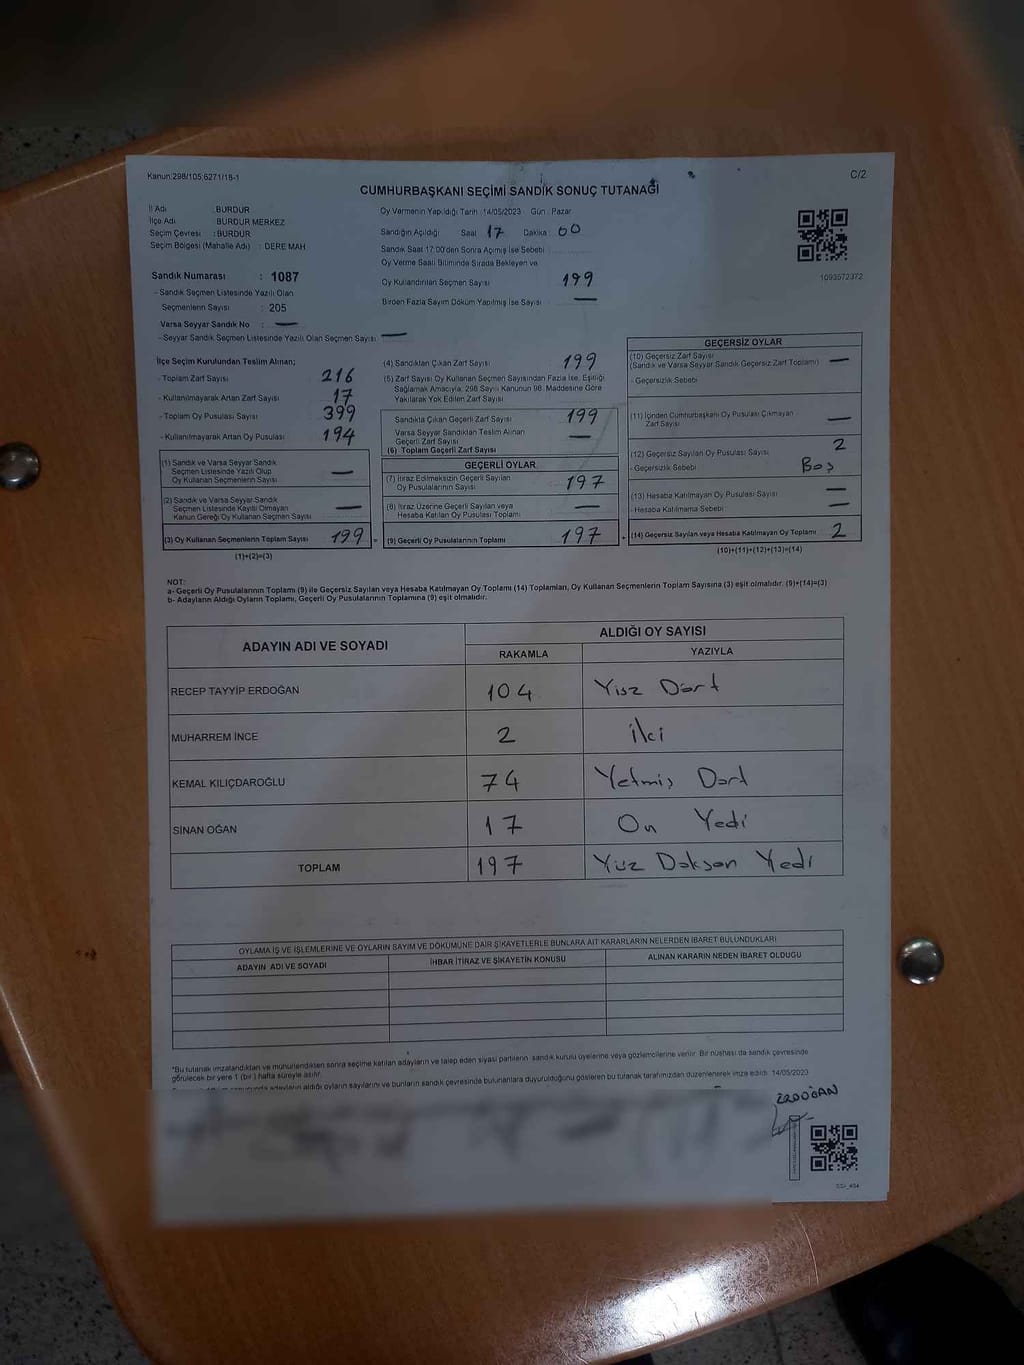 Kanun:298/105,6271/18-1
C/2
CUMHURBAŞKANI SEÇİMİ SANDIK SONUÇ TUTANAĞI
İl Adı : BURDUR
İlçe Adı : BURDUR MERKEZ
Seçim Çevresi : BURDUR
Seçim Bölgesi (Mahalle Adı) : DERE MAH
Sandık Numarası : 1087
- Sandık Seçmen Listesinde Yazılı Olan
Seçmenlerin Sayısı : 205
Varsa Seyyar Sandık No : —
- Seyyar Sandık Seçmen Listesinde Yazılı Olan Seçmen Sayısı : —
Oy Vermenin Yapıldığı Tarih :14/05/2023 Gün : Pazar
Sandığın Açıldığı Saat 17 Dakika 00
Sandık Saat 17:00'den Sonra Açılmış İse Sebebi
Oy Verme Saati Bitiminde Sırada Bekleyen ve
Oy Kullandırılan Seçmen Sayısı 199
Birden Fazla Sayım Döküm Yapılmış İse Sayısı —
1093572372
İlçe Seçim Kurulundan Teslim Alınan;
- Toplam Zarf Sayısı 216
- Kullanılmayarak Artan Zarf Sayısı 17
- Toplam Oy Pusulası Sayısı 399
- Kullanılmayarak Artan Oy Pusulası 194
(1) Sandık ve Varsa Seyyar Sandık
Seçmen Listesinde Yazılı Olup
Oy Kullanan Seçmenlerin Sayısı —
(2) Sandık ve Varsa Seyyar Sandık
Seçmen Listesinde Kayıtlı Olmayan
Kanun Gereği Oy Kullanan Seçmen Sayısı —
(3) Oy Kullanan Seçmenlerin Toplam Sayısı 199 =
(1)+(2)=(3)
(4) Sandıktan Çıkan Zarf Sayısı 199
(5) Zarf Sayısı Oy Kullanan Seçmen Sayısından Fazla İse, Eşitliği
Sağlamak Amacıyla, 298 Sayılı Kanunun 98. Maddesine Göre
Yakılarak Yok Edilen Zarf Sayısı
Sandıkta Çıkan Geçerli Zarf Sayısı 199
Varsa Seyyar Sandıktan Teslim Alınan
Geçerli Zarf Sayısı —
(6) Toplam Geçerli Zarf Sayısı
GEÇERLİ OYLAR
(7) İtiraz Edilmeksizin Geçerli Sayılan
Oy Pusulalarının Sayısı 197
(8) İtiraz Üzerine Geçerli Sayılan veya
Hesaba Katılan Oy Pusulası Toplamı —
(9) Geçerli Oy Pusulalarının Toplamı 197 +
GEÇERSİZ OYLAR
(10) Geçersiz Zarf Sayısı
(Sandık ve Varsa Seyyar Sandık Geçersiz Zarf Toplamı) —
- Geçersizlik Sebebi
(11) İçinden Cumhurbaşkanı Oy Pusulası Çıkmayan
Zarf Sayısı —
(12) Geçersiz Sayılan Oy Pusulası Sayısı 2
- Geçersizlik Sebebi Boş
(13) Hesaba Katılmayan Oy Pusulası Sayısı —
- Hesaba Katılmama Sebebi —
(14) Geçersiz Sayılan veya Hesaba Katılmayan Oy Toplamı 2
(10)+(11)+(12)+(13)=(14)
NOT:
a- Geçerli Oy Pusulalarının Toplamı (9) ile Geçersiz Sayılan veya Hesaba Katılmayan Oy Toplamı (14) Toplamları, Oy Kullanan Seçmenlerin Toplam Sayısına (3) eşit olmalıdır. (9)+(14)=(3)
b- Adayların Aldığı Oyların Toplamı, Geçerli Oy Pusulalarının Toplamına (9) eşit olmalıdır.
ADAYIN ADI VE SOYADI
ALDIĞI OY SAYISI
RAKAMLA YAZIYLA
RECEP TAYYİP ERDOĞAN 104 Yüz Dört
MUHARREM İNCE 2 İki
KEMAL KILIÇDAROĞLU 74 Yetmiş Dört
SİNAN OĞAN 17 On Yedi
TOPLAM 197 Yüz Doksan Yedi
OYLAMA İŞ VE İŞLEMLERİNE VE OYLARIN SAYIM VE DÖKÜMÜNE DAİR ŞİKAYETLERLE BUNLARA AİT KARARLARIN NELERDEN İBARET BULUNDUKLARI
ADAYIN ADI VE SOYADI İHBAR İTİRAZ VE ŞİKAYETİN KONUSU ALINAN KARARIN NEDEN İBARET OLDUĞU
"Bu tutanak imzalandıktan ve mühürlendikten sonra seçime katılan adayların ve talep eden siyasi partilerin sandık kurulu üyelerine veya gözlemcilerine verilir. Bir nüshası da sandık çevresinde
görülecek bir yere 1 (bir) hafta süreyle asılır.
adayların aldığı oyların sayılarını ve bunların sandık çevresinde bulunanlara duyurulduğunu gösteren bu tutanak tarafımızdan düzenlenerek imza edildi. 14/05/2023
ERDOĞAN